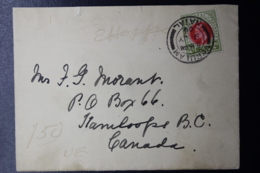 Mr F. G. Morant.
P.O Box 66.
Kamloops B.C.
Canada.
150
NATAL